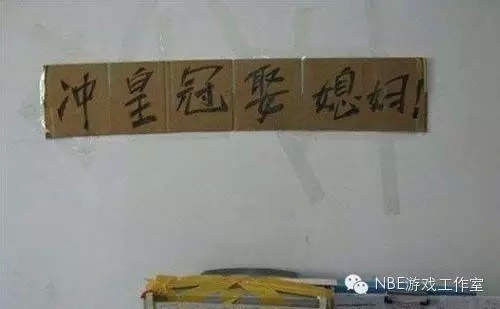 冲皇冠娶媳妇!
NBE游戏工作室